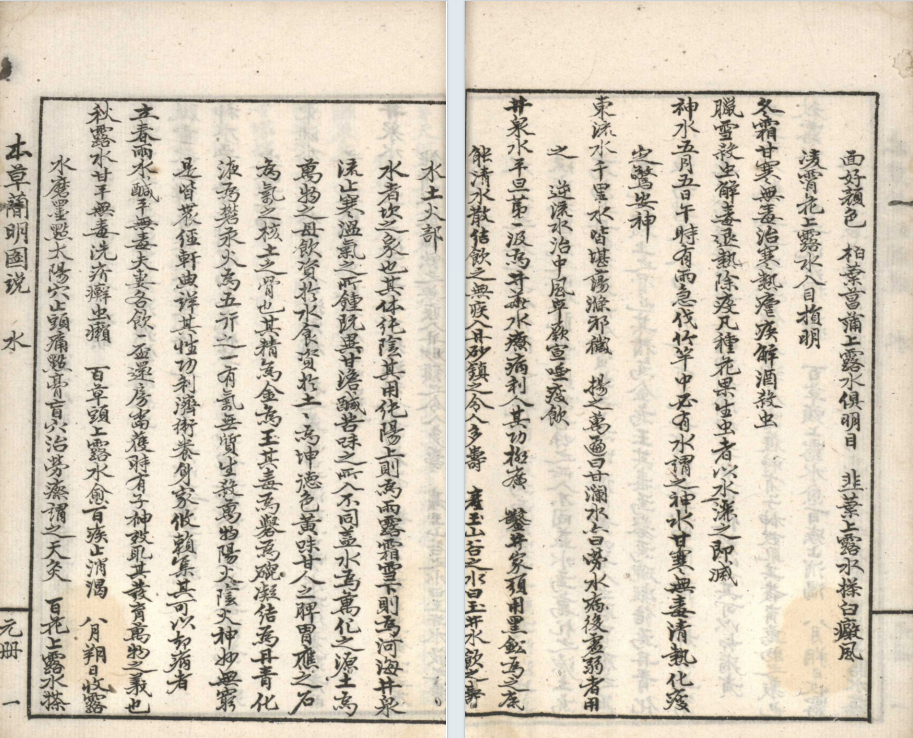 水土火部
水者坎之象也其体化陰其用化陽上則為雨露霜雪下則為河海井泉
流止寒溫氣之所鍾既異甘淡鹹苦味之所入不同蓋水為萬化之源土為
萬物之母飲資於水食資於土土為坤德色黄味甘人之脾胃應之石
為氣之核土之骨也其精為金為玉其毒為礜為凝結為丹青化
液為礬汞火為五行之一有氣無質生殺萬物陽火陰火神妙無窮
是皆農經軒典詳其性功利濟術養身家攸賴集其可以却病者
立春雨水鹹平無毒夫妻各飲一盃還房當獲時有子神效取其發育萬物之義也
秋露水甘平無毒洗疥癬虫癩 百草頭上露水愈百疾止消渴 八月朔日收露
水磨墨點太陽穴止頭痛點膏肓穴治勞瘵謂之天灸 百花上露水搽
本草簡明圖説 水 元冊 一
面好顔色 柏葉菖蒲上露水俱明目 韭葉上露水搽白癜風
凌霄花上露水入目損明
冬霜甘寒無毒治寒熱瘧疾解酒殺虫
臘雪殺虫解毒退熱除疫凡種花果生虫者以水澆之即滅
神水五月五日午時有雨急伐竹竿中必有水謂之神水甘寒無毒清熱化痰
定驚安神
東流水千里水皆堪蕩滌邪穢 揚之萬遍曰甘瀾水亦曰勞水病後虛弱者用
之 逆流水治中風卒厥宣嘔痰飲
井泉水平旦第一汲為井華水療病利人其功極廣 鑿井家須用黑鉛為之底
能清水散結飲之無疾入丹砂鎮之令人多壽 產玉山谷之水曰玉井水飲之壽